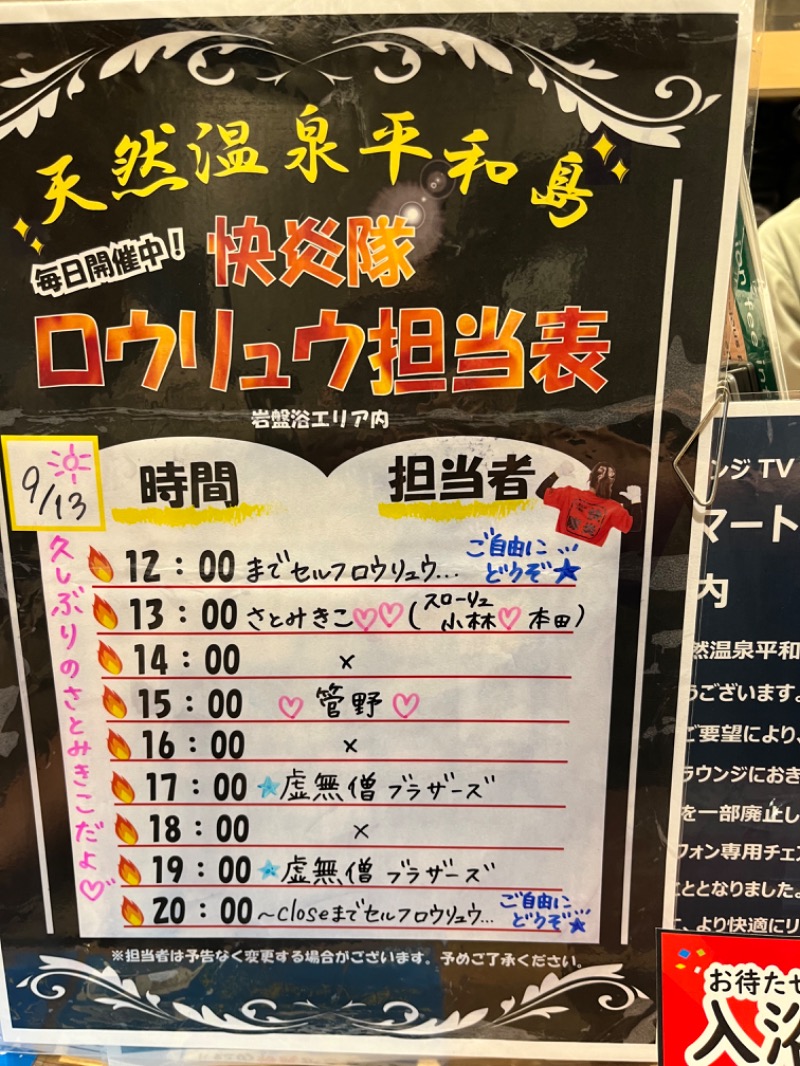 天然温泉平和島
毎日開催中！
快炎隊
ロウリュウ担当表
岩盤浴エリア内
9/13
時間
担当者
久しぶりのさとみきこだよ♡
12：00 までセルフロウリュウ... ご自由にどうぞ★
13：00 さとみきこ♡♡(スローリュ 小林♡本田)
14：00 ×
15：00 ♡ 管野 ♡
16：00 ×
17：00 ★虚無僧ブラザーズ
18：00 ×
19：00 ★虚無僧ブラザーズ
20：00 ～closeまでセルフロウリュウ... ご自由にどうぞ★
※担当者は予告なく変更する場合がございます。予めご了承ください。
ンジTV
マート
内
然温泉平和
うございます。
ご要望により、
ラウンジにおき
を一部廃止し
フォン専用チェ
こととなりました。
、より快適にリ
お待たせ
入浴